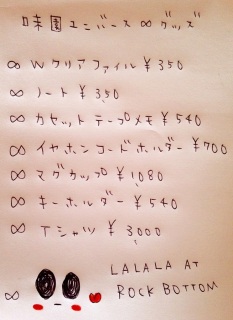 味園ユニバース∞グッズ
∞ Wクリアファイル ¥350
∞ ノート ¥350
∞ カセットテープメモ ¥540
∞ イヤホンコードホルダー ¥700
∞ マグカップ ¥1080
∞ キーホルダー ¥540
∞ Tシャツ ¥3000
∞
LALALA AT
ROCK BOTTOM